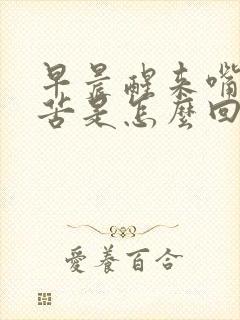 早晨醒来嘴
苦是怎麼回
愛養百合